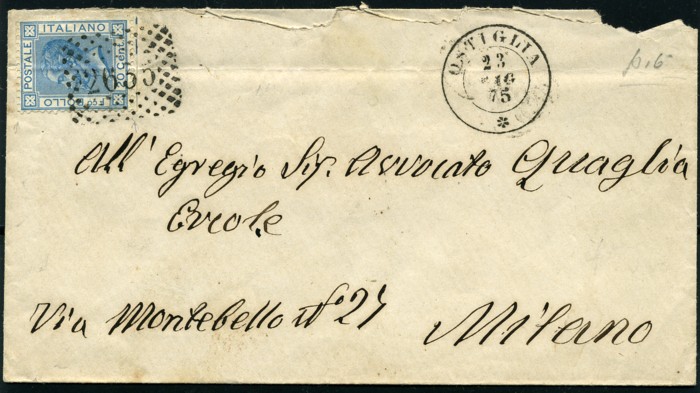 ITALIANO
POSTALE
20 Cent
BOLLO
OSTIGLIA
23
75
All' Egregio Sig. Avvocato Quaglia
Ercole
Via Montebello N° 27
Milano